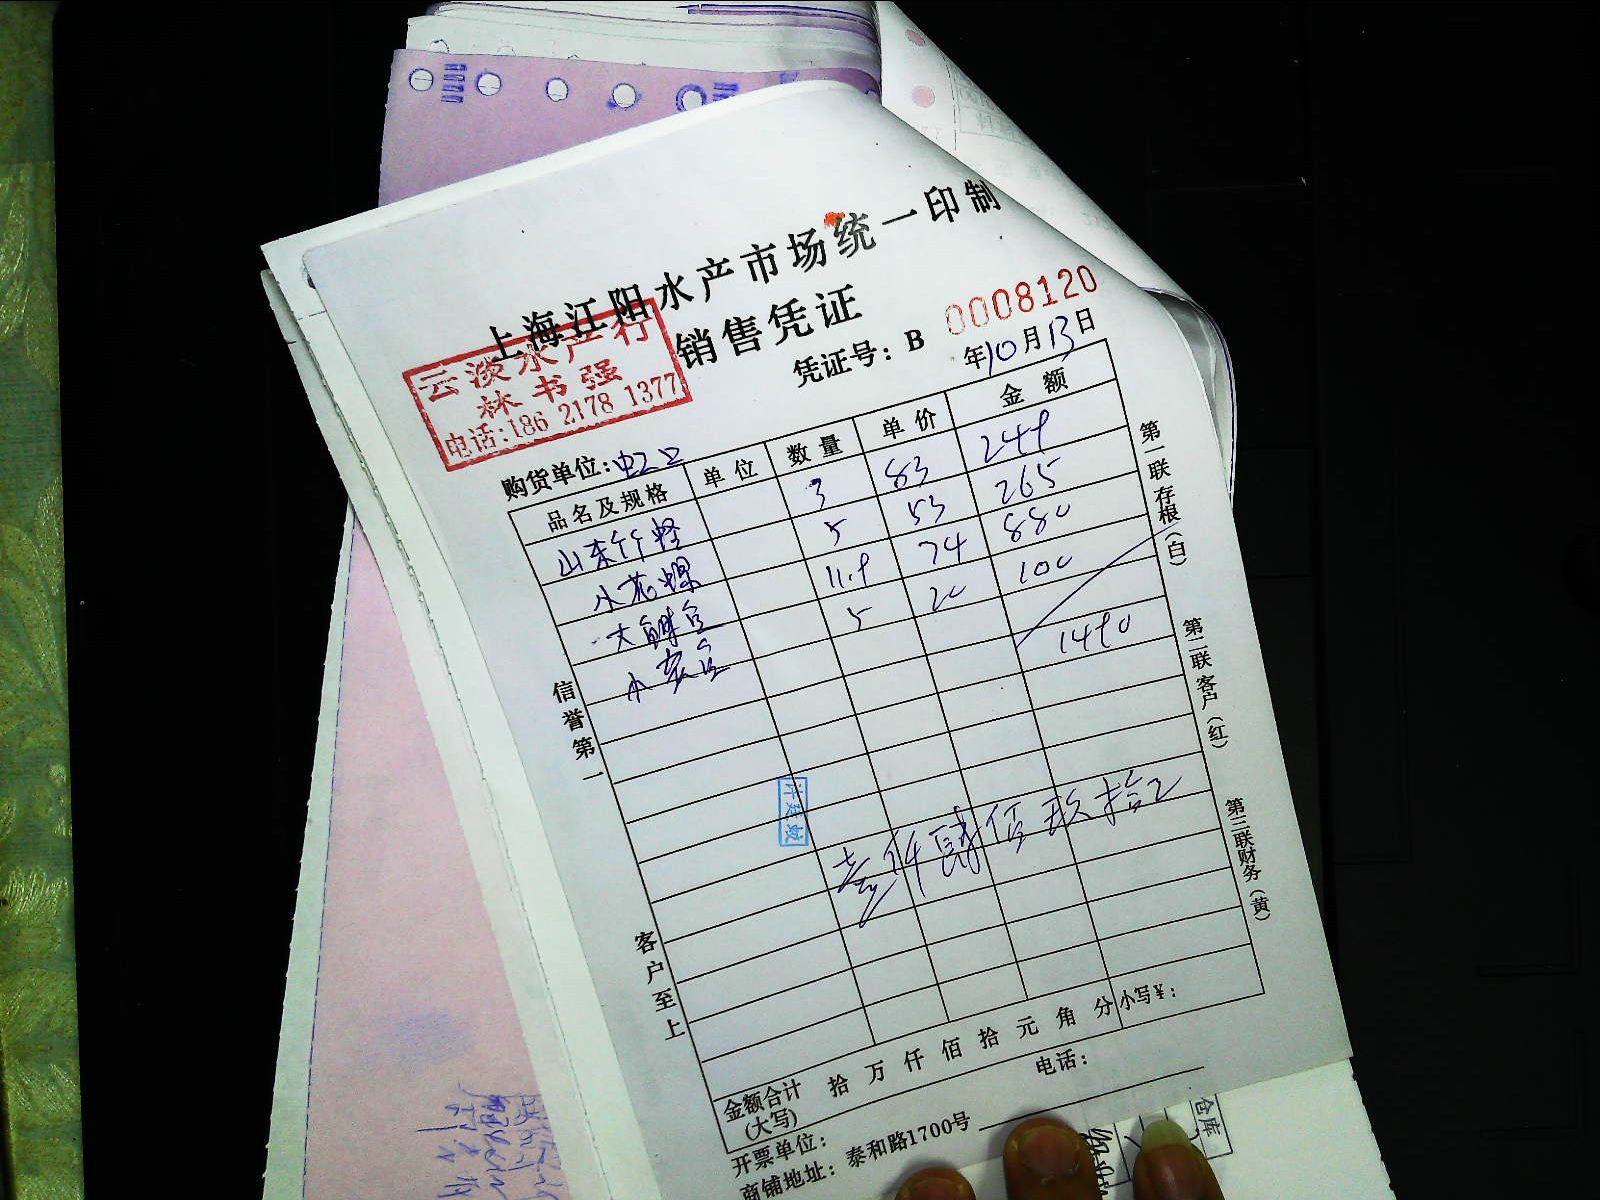 上海江阳水产市场统一印制
销售凭证
云淡水产行
林书强
电话:186 2178 1377
凭证号: B 0008120
年10月13日
购货单位:
品名及规格 单位 数量 单价 金额
山东竹蛏 3 83 249
小花螺 5 53 265
大 11.9 74 880
小 5 20 100
1490
壹仟肆佰玖拾
信誉第一
客户至上
第一联存根(白)
第二联客户(红)
第三联财务(黄)
金额合计(大写) 拾 万 仟 佰 拾 元 角 分 小写¥:
开票单位: 电话:
商铺地址: 泰和路1700号
仓库